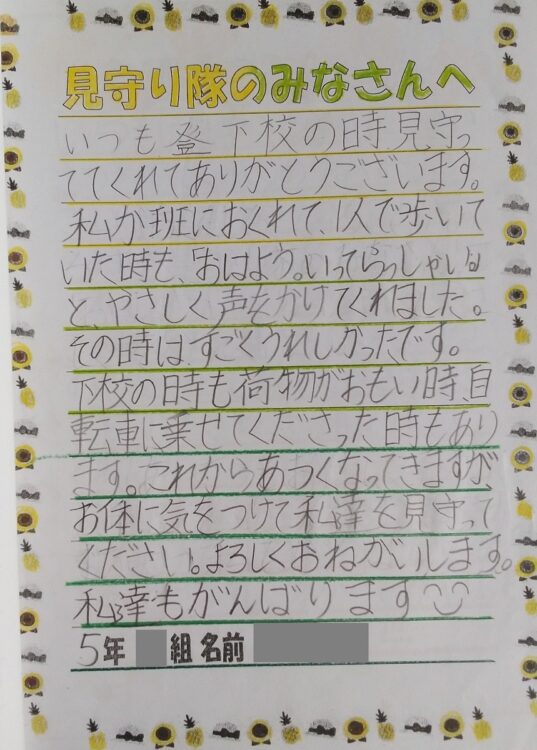 見守り隊のみなさんへ
いつも登下校の時、見守っ
ててくれてありがとうございます。
私が班におくれて、1人で歩いて
いた時も、「おはよう。いってらっしゃい。」
と、やさしく声をかけてくれました。
その時は、すごくうれしかったです。
下校の時も荷物がおもい時、自
転車に乗せてくださった時もあり
ます。これからあつくなってきますが、
お体に気をつけて私達を見守って
ください。よろしくおねがいします。
私達もがんばります
5年 組 名前